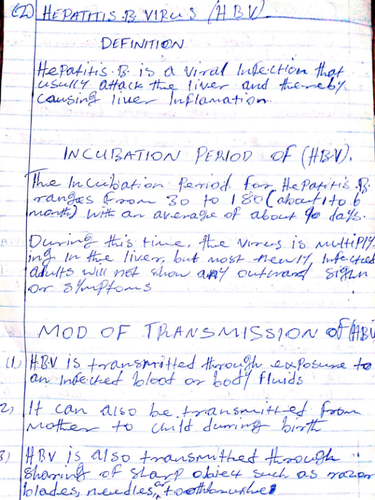 (2) HEPATITIS.B VIRUS (HBV)
DEFINITION
Hepatitis.B is a viral infection that
usully attack the liver and thereby
causing liver inflamation
INCUBATION PERIOD OF (HBV).
The Incubation period for Hepatitis.B
ranges from 30 to 180 (about 1 to 6
month) with an average of about 90 days.
During this time, the virus is multiply
ing in the liver, but most newly infected
adults will not show any outward sign
or symptoms
MOD OF TRANSMISSION OF (HBV
(1) HBV is transmitted through exposure to
an infected bloot or body fluids
2) It can also be transmitted from
mother to child during birth
3) HBV is also transmitted through
sharing of sharp object such as razor
blades, needles, or toothbrushes